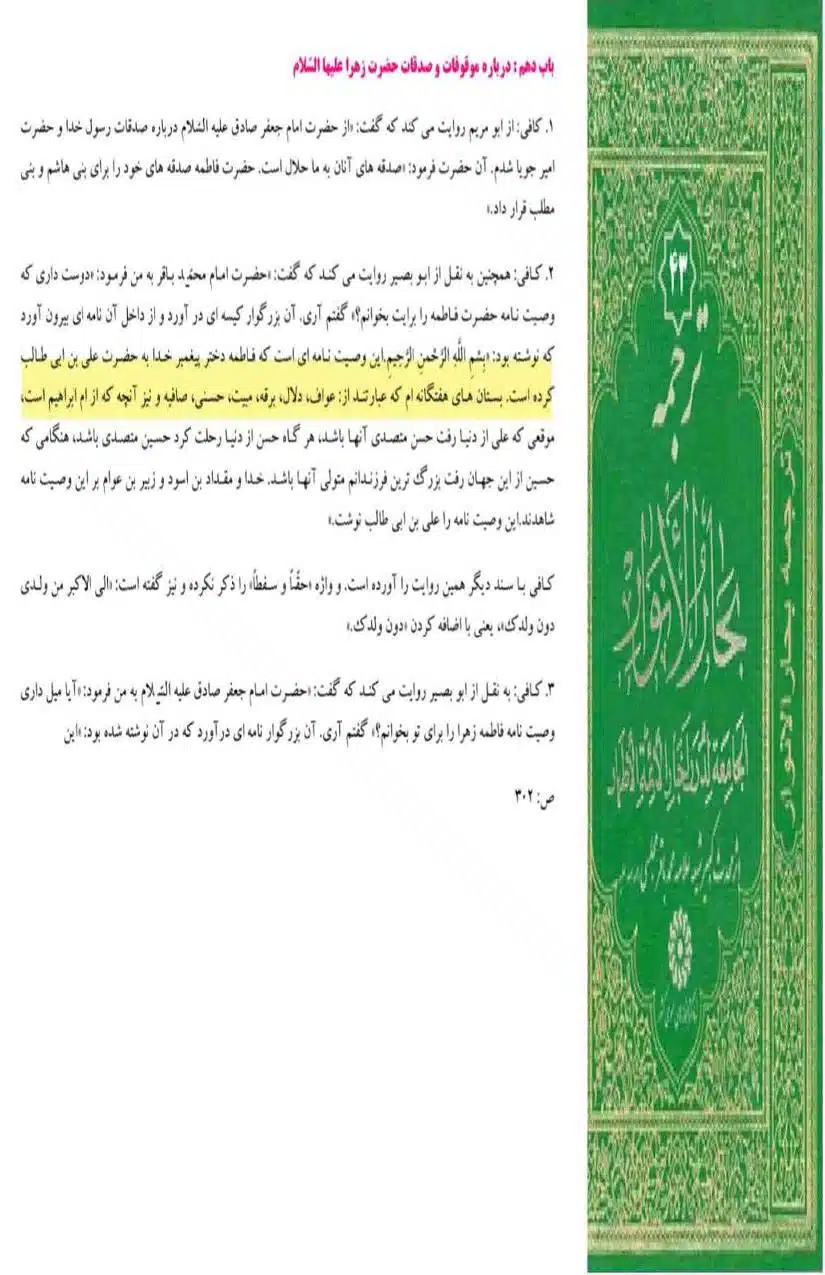 باب دهم: درباره موقوفات و صدقات حضرت زهرا علیها السّلام
۱. کافی: از ابو مریم روایت می کند که گفت: «از حضرت امام جعفر صادق علیه السّلام درباره صدقات رسول خدا و حضرت
امیر جویا شدم. آن حضرت فرمود: «صدقه های آنان به ما حلال است. حضرت فاطمه صدقه های خود را برای بنی هاشم و بنی
مطلب قرار داد.»
۲. کافی: همچنین به نقل از ابو بصیر روایت می کند که گفت: «حضرت امام محمّد باقر به من فرمود: «دوست داری که
وصیت نامه حضرت فاطمه را برایت بخوانم؟» گفتم آری. آن بزرگوار کیسه ای در آورد و از داخل آن نامه ای بیرون آورد
که نوشته بود: «بِسْمِ اللَّهِ الرَّحْمنِ الرَّحِیمِ.این وصیت نامه ای است که فاطمه دختر پیغمبر خدا به حضرت علی بن ابی طالب
کرده است. بستان های هفتگانه ام که عبارتند از: عواف، دلال، برقه، مبیت، حسنی، صافیه و نیز آنچه که از ام ابراهیم است،
موقعی که علی از دنیا رفت حسن متصدی آنها باشد، هر گاه حسن از دنیا رحلت کرد حسین متصدی باشد، هنگامی که
حسین از این جهان رفت بزرگ ترین فرزندانم متولی آنها باشد. خدا و مقداد بن اسود و زبیر بن عوام بر این وصیت نامه
شاهدند.این وصیت نامه را علی بن ابی طالب نوشت.»
کافی با سند دیگر همین روایت را آورده است. و واژه «حقّاً و سفطاً» را ذکر نکرده و نیز گفته است: «الی الاکبر من ولدی
دون ولدک»، یعنی با اضافه کردن «دون ولدک.»
۳. کافی: به نقل از ابو بصیر روایت می کند که گفت: «حضرت امام جعفر صادق علیه السّلام به من فرمود: «آیا میل داری
وصیت نامه فاطمه زهرا را برای تو بخوانم؟» گفتم آری. آن بزرگوار نامه ای درآورد که در آن نوشته شده بود: «این
ص: ۳۰۲
۴۳
ترجمه
بحار الأنوار
الجامعة لدرر أخبار الأئمة الأطهار
ترجمه بحار الانوار